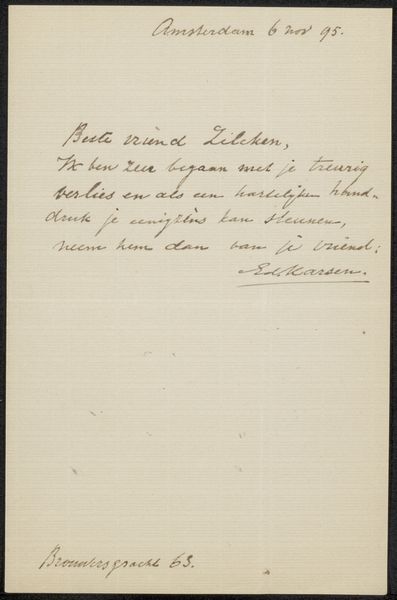 Amsterdam 6 nov 95.
Beste vriend Zilcken,
Ik ben zeer begaan met je treurig
verlies en als een hartelijken hand-
druk je eenigzins kan steunen,
neem hem dan van je vriend:
Ed. Karsen.
Brouwersgracht 63.